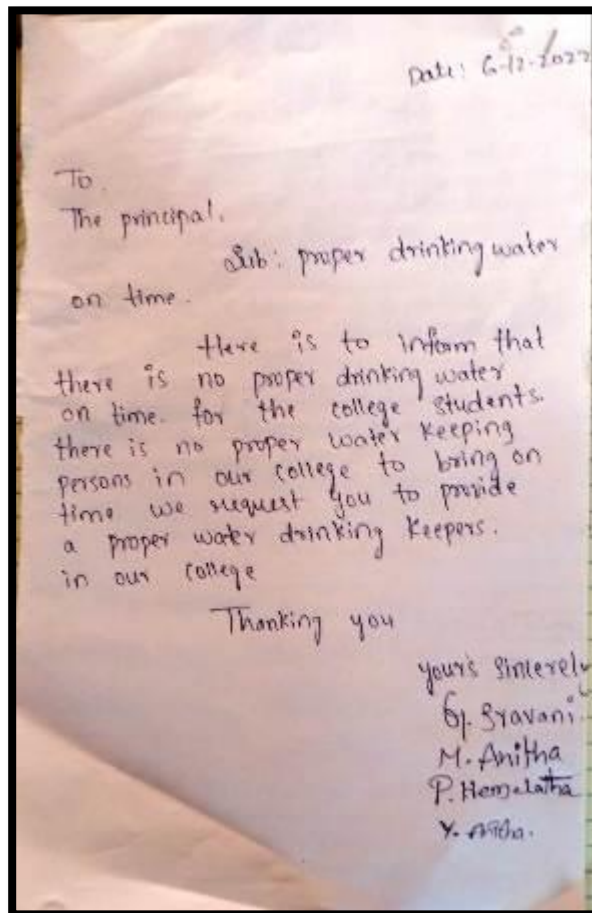 Date: 6-12-2022
To,
The principal.
Sub: proper drinking water
on time.
Here is to inform that
there is no proper drinking water
on time. for the college students.
there is no proper water keeping
persons in our college to bring on
time we request you to provide
a proper water drinking keepers.
in our college
Thanking you
your's sincerely
G. Sravani
M. Anitha
P. Hemalatha
Y.